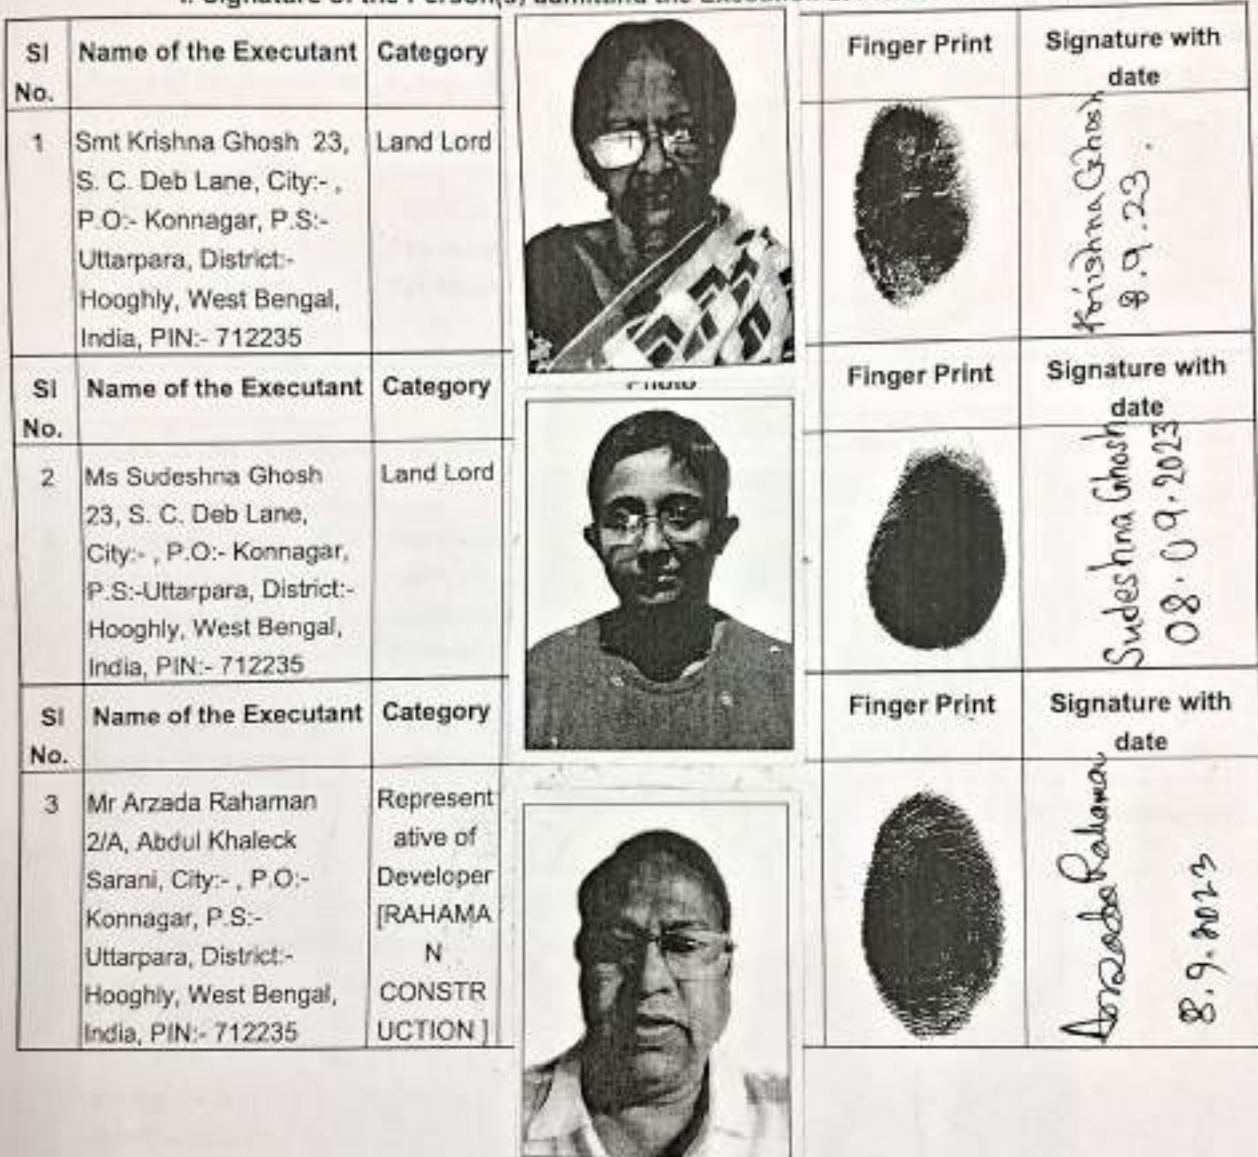 I. Signature of the Person(s) admitting the Execution
Sl No. Name of the Executant Category Finger Print Signature with date
1 Smt Krishna Ghosh 23, Land Lord
S. C. Deb Lane, City:- ,
P.O:- Konnagar, P.S:-
Uttarpara, District:-
Hooghly, West Bengal,
India, PIN:- 712235
Krishna Ghosh
8.9.23.
Sl No. Name of the Executant Category Photo Finger Print Signature with date
2 Ms Sudeshna Ghosh Land Lord
23, S. C. Deb Lane,
City:- , P.O:- Konnagar,
P.S:-Uttarpara, District:-
Hooghly, West Bengal,
India, PIN:- 712235
Sudeshna Ghosh
08.09.2023
Sl No. Name of the Executant Category Finger Print Signature with date
3 Mr Arzada Rahaman
2/A, Abdul Khaleck
Sarani, City:- , P.O:-
Konnagar, P.S:-
Uttarpara, District:-
Hooghly, West Bengal,
India, PIN:- 712235
Represent
ative of
Developer
[RAHAMA
N
CONSTR
UCTION ]
Arzada Rahaman
8.9.2023